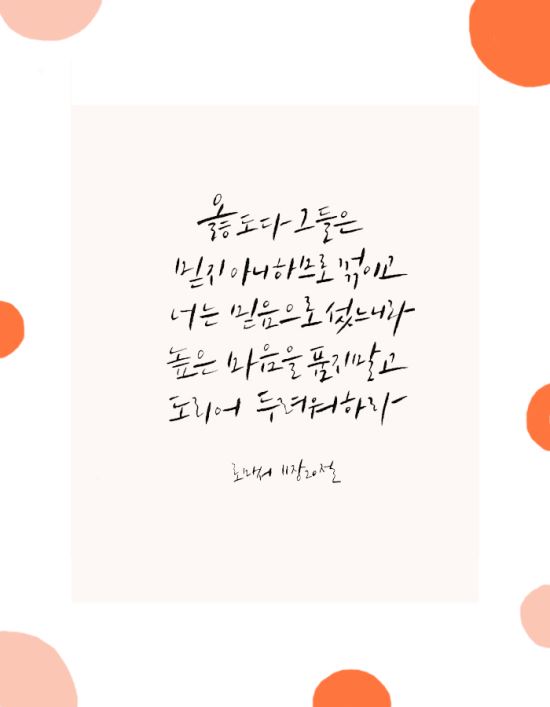 옳도다 그들은
믿지 아니하므로 꺾이고
너는 믿음으로 섰느니라
높은 마음을 품지말고
도리어 두려워하라
로마서 11장20절